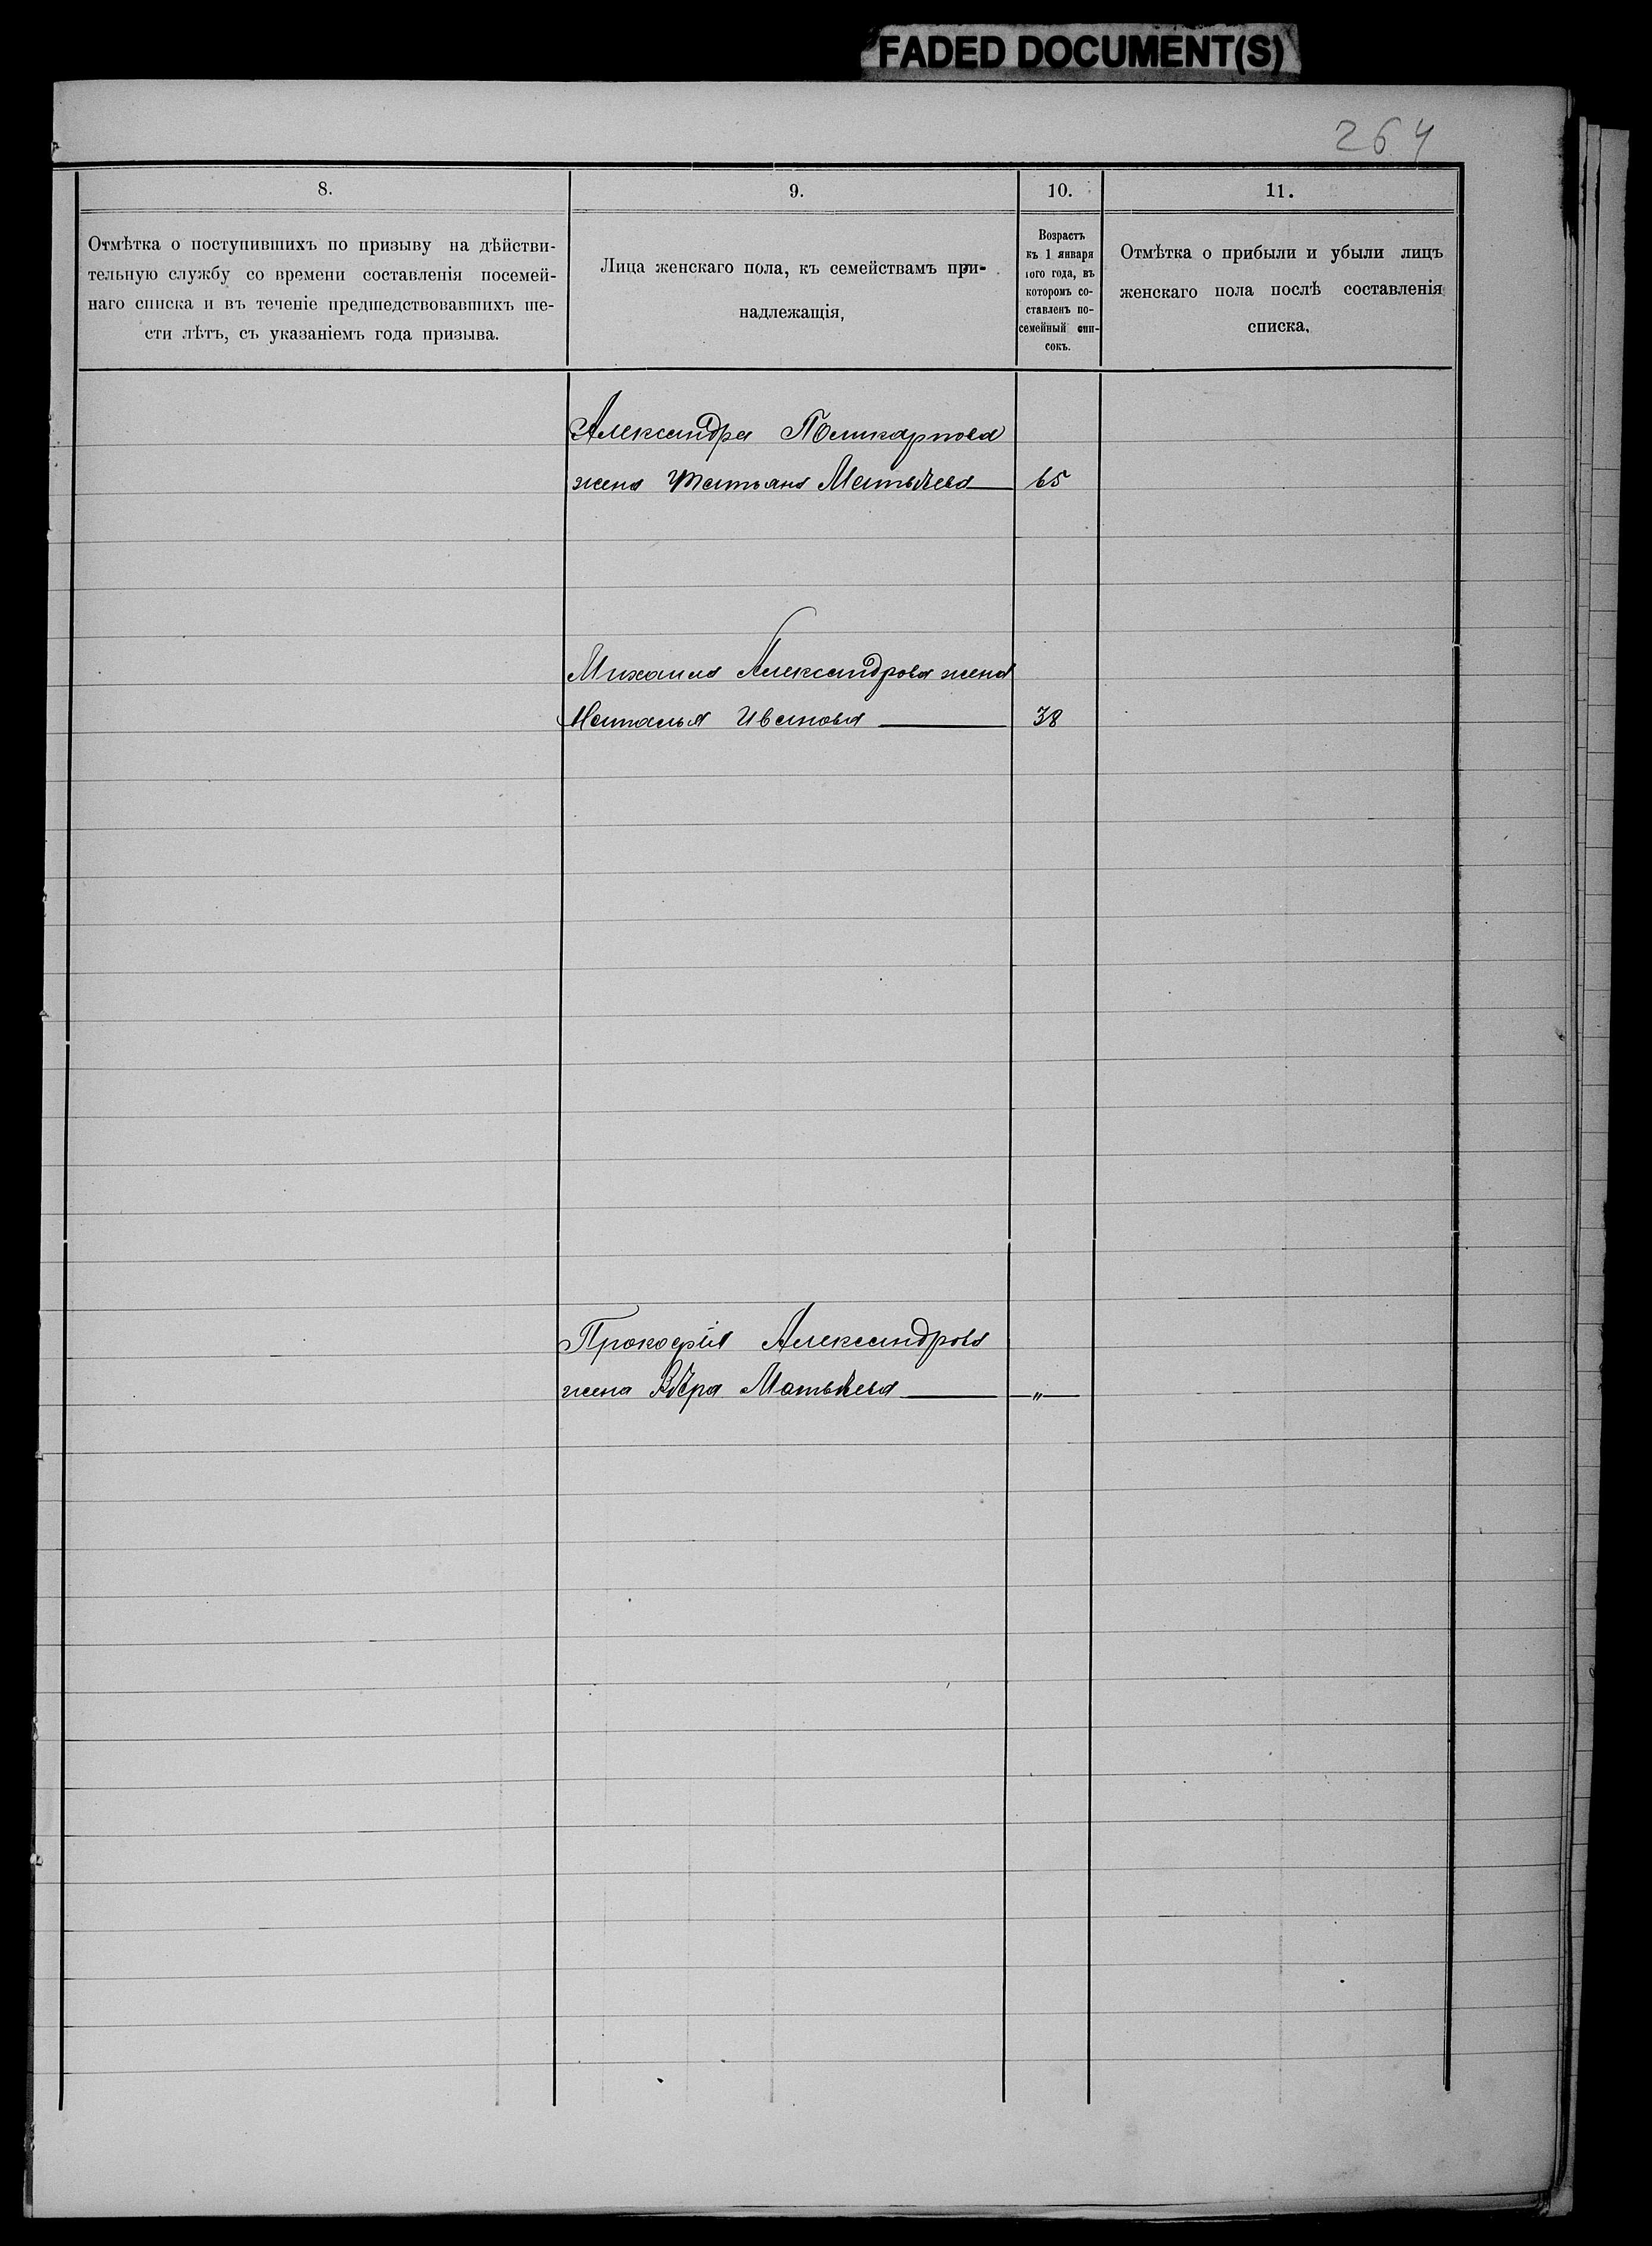 FADED DOCUMENT(S)
264
8.
Отмѣтка о поступившихъ по призыву на дѣйстви-
тельную службу со времени составленія посемей-
наго списка и въ теченіе предшедствовавшихъ ше-
сти лѣтъ, съ указаніемъ года призыва.
9.
Лица женскаго пола, къ семействамъ при-
надлежащія,
10.
Возрастъ
къ 1 января
того года, въ
которомъ со-
ставленъ по-
семейный спи-
сокъ.
11.
Отмѣтка о прибыли и убыли лицъ
женскаго пола послѣ составленія
списка.
Александра Поликарпова
жена Татьяна Матвѣева 65
Михаила Александрова жена
Наталья Иванова 38
Прокофія Александрова
жена Вѣра Матвѣева — „ —